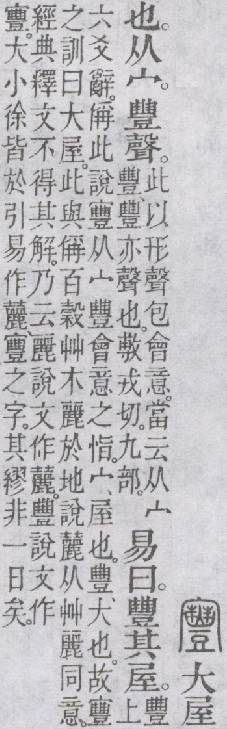 寷大屋
也。从宀。豐聲。此以形聲包會意。當云从宀豐、豐亦聲也。敷戎切。九部。易曰。豐其屋。豐上
六爻辭。偁此說寷从宀豐會意之恉。宀、屋也。豐、大也。故寷
之訓曰大屋。此與偁百穀艸木麗於地說䕻从艸麗同意。
經典釋文不得其解。乃云麗說文作䕻。豐說文作
寷。大小徐皆於引易作䕻寷之字。其繆非一日矣。